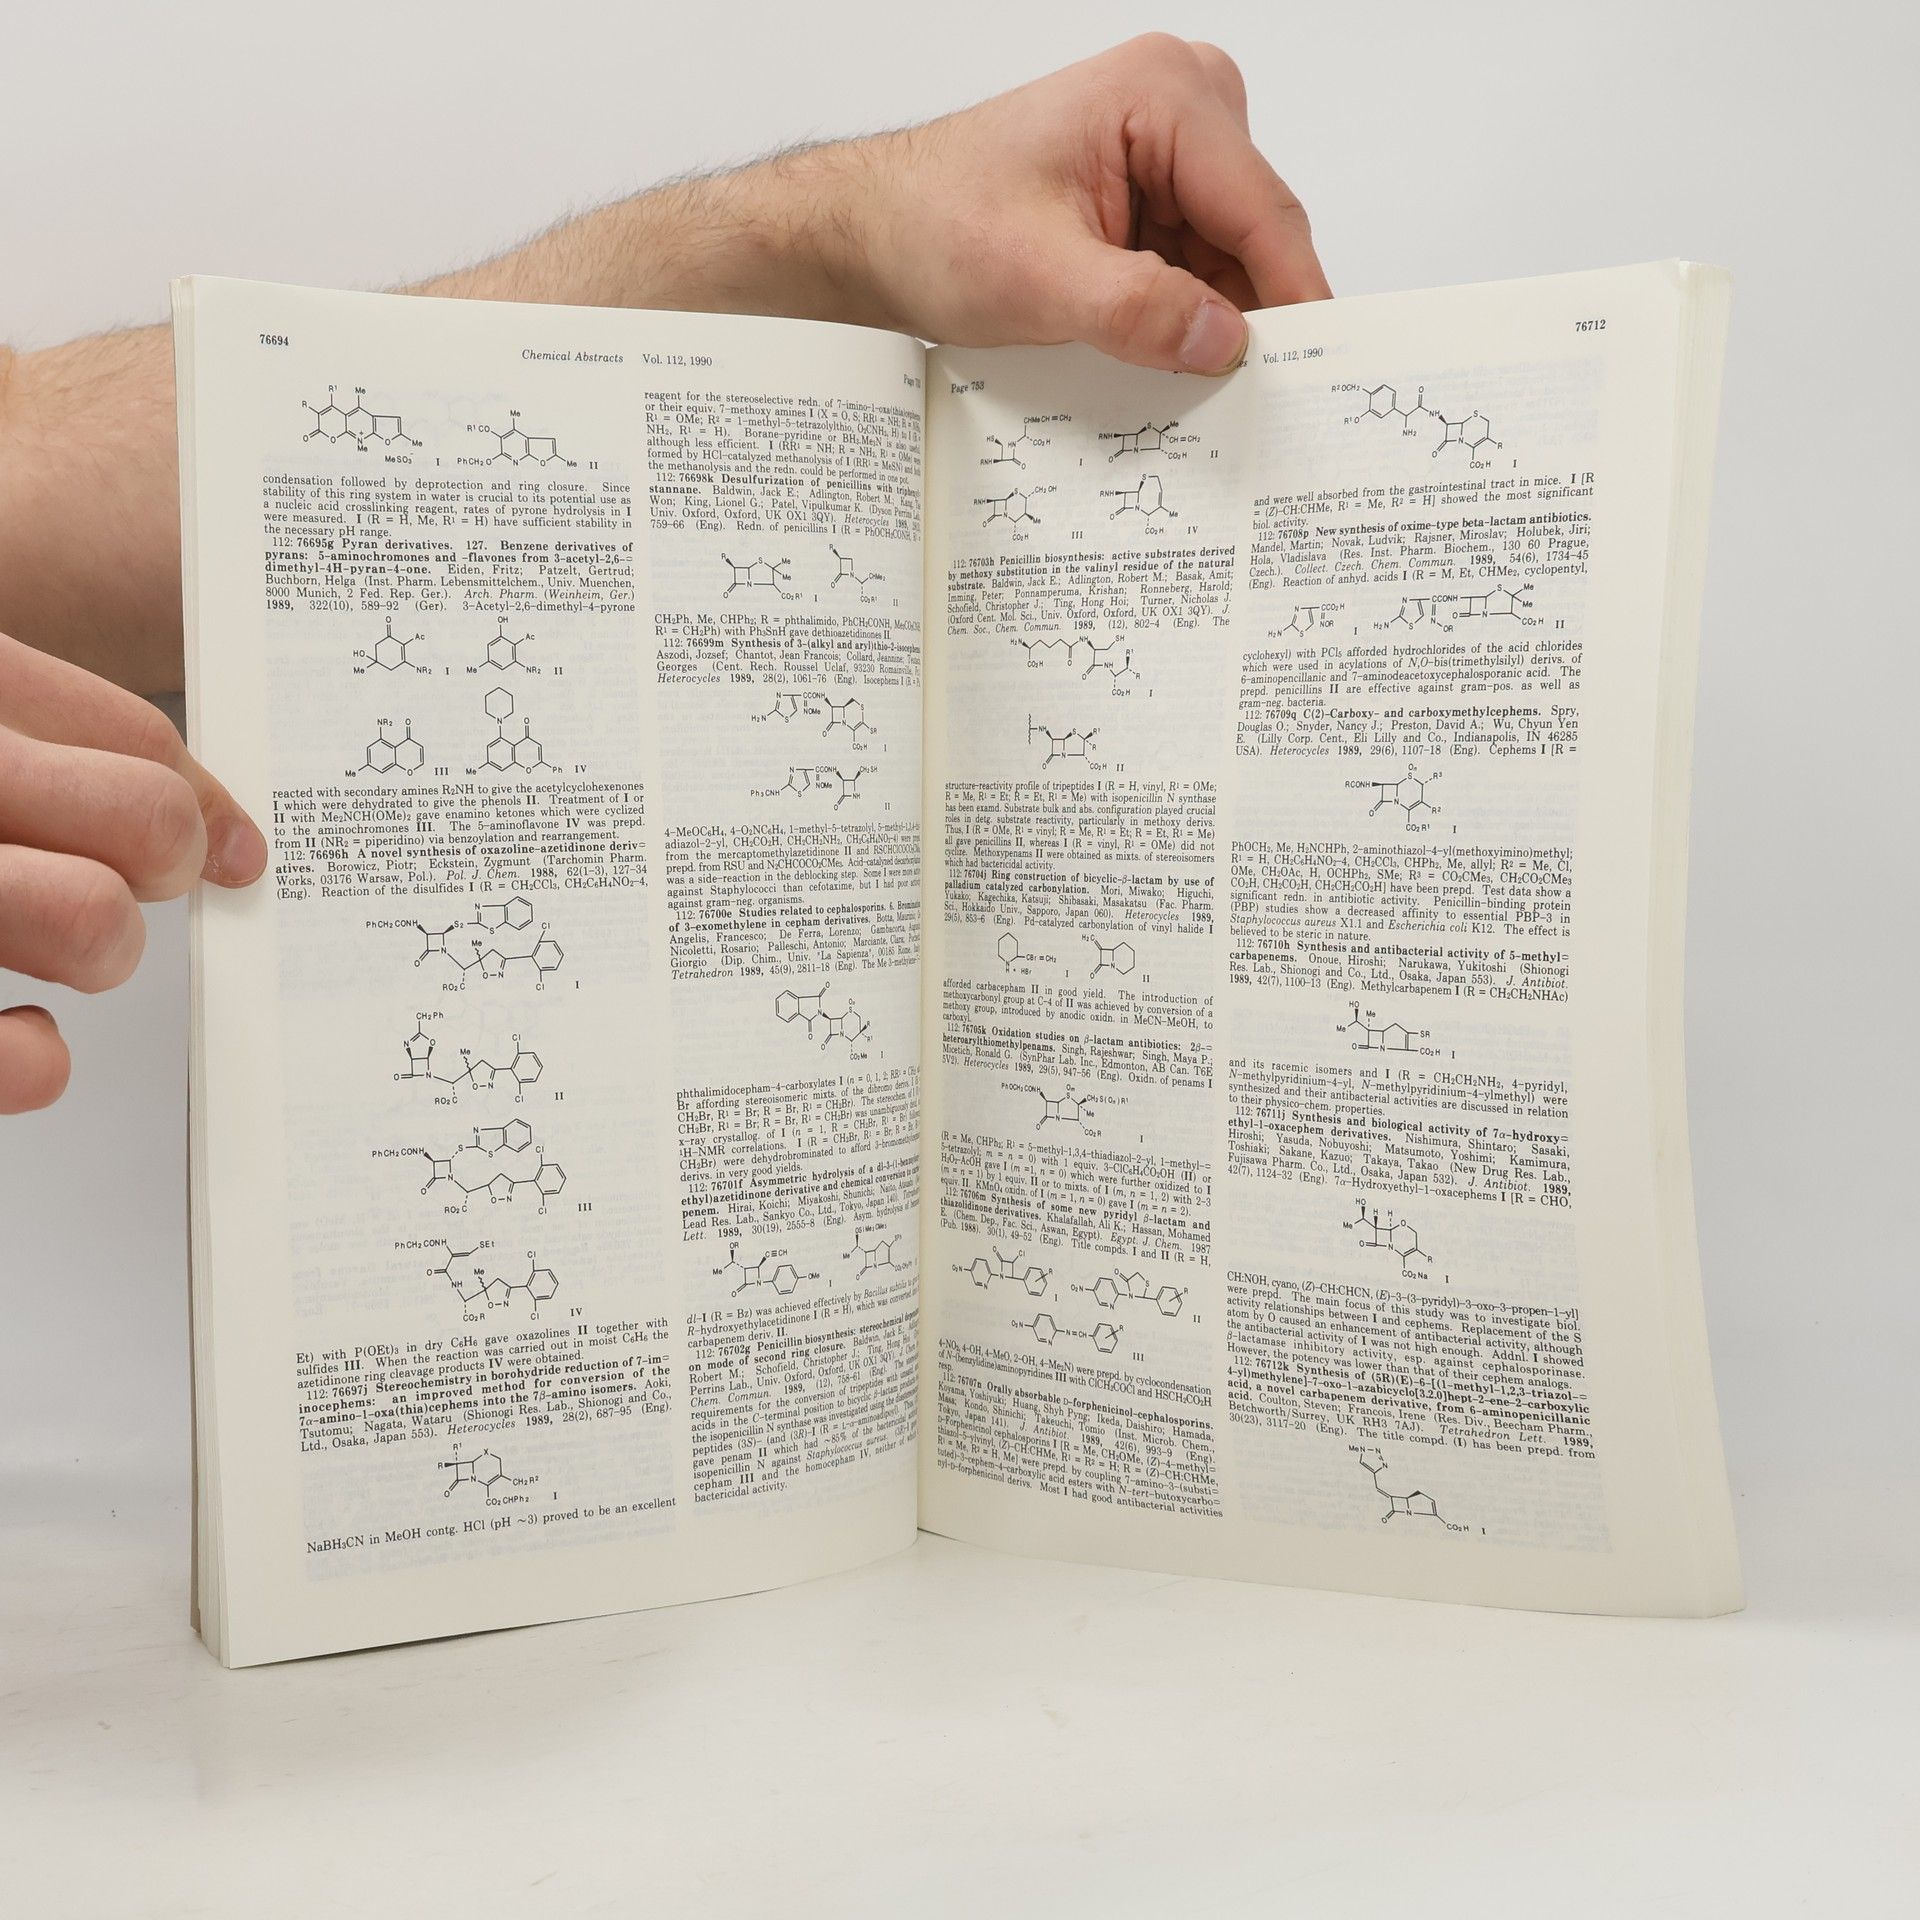 76694
Chemical Abstracts Vol. 112, 1990
condensation followed by deprotection and ring closure. Since
stability of this ring system in water is crucial to its potential use as
a nucleic acid crosslinking reagent, rates of pyrone hydrolysis in I
were measured. I (R = H, Me, R¹ = H) have sufficient stability in
the necessary pH range.
112: 76695g Pyran derivatives. 127. Benzene derivatives of
pyrans: 5-aminochromones and -flavones from 3-acetyl-2,6-=
dimethyl-4H-pyran-4-one. Eiden, Fritz; Patzelt, Gertrud;
Buchborn, Helga (Inst. Pharm. Lebensmittelchem., Univ. Muenchen,
8000 Munich, 2 Fed. Rep. Ger.). Arch. Pharm. (Weinheim, Ger.)
1989, 322(10), 589-92 (Ger). 3-Acetyl-2,6-dimethyl-4-pyrone
reacted with secondary amines R₂NH to give the acetylcyclohexenones
I which were dehydrated to give the phenols II. Treatment of I or
II with Me₂NCH(OMe)₂ gave enamino ketones which were cyclized
to the aminochromones III. The 5-aminoflavone IV was prepd.
from II (NR₂ = piperidino) via benzoylation and rearrangement.
112: 76696h A novel synthesis of oxazoline-azetidinone deriv=
atives. Borowicz, Piotr; Eckstein, Zygmunt (Tarchomin Pharm.
Works, 03176 Warsaw, Pol.). Pol. J. Chem. 1988, 62(1-3), 127-34
(Eng). Reaction of the disulfides I (R = CH₂CCl₃, CH₂C₆H₄NO₂-4,
Et) with P(OEt)₃ in dry C₆H₆ gave oxazolines II together with
sulfides III. When the reaction was carried out in moist C₆H₆ the
azetidinone ring cleavage products IV were obtained.
112: 76697j Stereochemistry in borohydride reduction of 7-im=
inocephems: an improved method for conversion of the
7α-amino-1-oxa(thia)cephems into the 7β-amino isomers. Aoki,
Tsutomu; Nagata, Wataru (Shionogi Res. Lab., Shionogi and Co.,
Ltd., Osaka, Japan 553). Heterocycles 1989, 28(2), 687-95 (Eng).
NaBH₃CN in MeOH contg. HCl (pH ~3) proved to be an excellent
reagent for the stereoselective redn. of 7-imino-1-oxa(thia)cephems
or their equiv. 7-methoxy amines I (X = O, S; RR¹ = NH;
R¹ = OMe; R² = 1-methyl-5-tetrazolylthio, O₂CNH₂, H) to I (R =
NH₂, R¹ = H). Borane-pyridine or BH₃.Me₃N is also useful,
although less efficient. I (RR¹ = NH; R = NH₂, R¹ = OMe) were
formed by HCl-catalyzed methanolysis of I (RR¹ = MeSN) and both
the methanolysis and the redn. could be performed in one pot.
112: 76698k Desulfurization of penicillins with triphenyl=
stannane. Baldwin, Jack E.; Adlington, Robert M.; Kang,
Won; King, Lionel G.; Patel, Vipulkumar K. (Dyson Perrins Lab.,
Univ. Oxford, Oxford, UK OX1 3QY). Heterocycles 1989,
759-66 (Eng). Redn. of penicillins I (R = PhOCH₂CONH,
CH₂Ph, Me, CHPh₂; R = phthalimido, PhCH₂CONH,
R¹ = CH₂Ph) with Ph₃SnH gave dethioazetidinones II.
112: 76699m Synthesis of 3-(alkyl and aryl)thio-2-isocephems
Aszodi, Jozsef; Chantot, Jean Francois; Collard, Jeannine;
Georges (Cent. Rech. Roussel Uclaf, 93230 Romainville,
Heterocycles 1989, 28(2), 1061-76 (Eng). Isocephems I
4-MeOC₆H₄, 4-O₂NC₆H₄, 1-methyl-5-tetrazolyl,
adiazol-2-yl, CH₂CO₂H, CH₂CH₂NH₂, CH₂C₆H₄NO₂-4) were
from the mercaptomethylazetidinone II and
prepd. from RSU and N₂CHCOCO₂CMe₃. Acid-catalyzed
was a side-reaction in the deblocking step. Some I were more active
against Staphylococci than cefotaxime, but I had poor
against gram-neg. organisms.
112: 76700e Studies related to cephalosporins. 6.
of 3-exomethylene in cepham derivatives. Botta,
Angelis, Francesco; De Ferra, Lorenzo; Gambacorta,
Nicoletti, Rosario; Palleschi, Antonio; Marciante, Clara;
Giorgio (Dip. Chim., Univ. "La Sapienza", 00185 Rome,
Tetrahedron 1989, 45(9), 2811-18 (Eng). The Me 3-methylene-
phthalimidocepham-4-carboxylates I (n = 0, 1, 2;
Br affording stereoisomeric mixts. of the dibromo derivs. I
CH₂Br, R¹ = Br; R = Br, R¹ = CH₂Br). The stereochem. of
CH₂Br, R¹ = Br; R = Br, R¹ = CH₂Br) was unambiguously
x-ray crystallog. of I (n = 1, R = CH₂Br, R¹ = Br)
¹H-NMR correlations. I (R = CH₂Br, R¹ = Br; R = Br,
CH₂Br) were dehydrobrominated to afford 3-bromomethyl
derivs. in very good yields.
112: 76701f Asymmetric hydrolysis of a dl-3-(1-
ethyl)azetidinone derivative and chemical conversion to
penem. Hirai, Koichi; Miyakoshi, Shunichi; Naito,
Lead Res. Lab., Sankyo Co., Ltd., Tokyo, Japan 140).
Lett. 1989, 30(19), 2555-8 (Eng). Asym. hydrolysis of
dl-I (R = Bz) was achieved effectively by Bacillus subtilis
R-hydroxyethylacetidinone I (R = H), which was converted
carbapenem deriv. II.
112: 76702g Penicillin biosynthesis: stereochemical
on mode of second ring closure. Baldwin, Jack E.;
Robert M.; Schofield, Christopher J.; Ting, Hong
Perrins Lab., Univ. Oxford, Oxford, UK OX1 3QY).
Chem. Commun. 1989, (12), 758-61 (Eng). The
requirements for the conversion of tripeptides with
acids in the C-terminal position to bicyclic β-lactam products
the isopenicillin N synthase was investigated using the
peptides (3S)- and (3R)-I (R = L-α-aminoadipoyl).
gave penam II which had ~85% of the bactericidal
isopenicillin N against Staphylococcus aureus.
cepham III and the homocepham IV, neither of
bactericidal activity.
Page 753
Vol. 112, 1990
76712
112: 76703h Penicillin biosynthesis: active substrates derived
by methoxy substitution in the valinyl residue of the natural
substrate. Baldwin, Jack E.; Adlington, Robert M.; Basak, Amit;
Imming, Peter; Ponnamperuma, Krishan; Ronneberg, Harold;
Schofield, Christopher J.; Ting, Hong Hoi; Turner, Nicholas J.
(Oxford Cent. Mol. Sci., Univ. Oxford, Oxford, UK OX1 3QY). J.
Chem. Soc., Chem. Commun. 1989, (12), 802-4 (Eng). The
structure-reactivity profile of tripeptides I (R = H, vinyl, R¹ = OMe;
R = Me, R¹ = Et; R = Et, R¹ = Me) with isopenicillin N synthase
has been examd. Substrate bulk and abs. configuration played crucial
roles in detg. substrate reactivity, particularly in methoxy derivs.
Thus, I (R = OMe, R¹ = vinyl; R = Me, R¹ = Et; R = Et, R¹ = Me)
all gave penicillins II, whereas I (R = vinyl, R¹ = OMe) did not
cyclize. Methoxypenams II were obtained as mixts. of stereoisomers
which had bactericidal activity.
112: 76704j Ring construction of bicyclic-β-lactam by use of
palladium catalyzed carbonylation. Mori, Miwako; Higuchi,
Yukako; Kagechika, Katsuji; Shibasaki, Masakatsu (Fac. Pharm.
Sci., Hokkaido Univ., Sapporo, Japan 060). Heterocycles 1989,
29(5), 853-6 (Eng). Pd-catalyzed carbonylation of vinyl halide I
afforded carbacepham II in good yield. The introduction of
methoxycarbonyl group at C-4 of II was achieved by conversion of a
methoxy group, introduced by anodic oxidn. in MeCN-MeOH, to
carboxyl.
112: 76705k Oxidation studies on β-lactam antibiotics: 2β-=
heteroarylthiomethylpenams. Singh, Rajeshwar; Singh, Maya P.;
Micetich, Ronald G. (SynPhar Lab. Inc., Edmonton, AB Can. T6E
5V2). Heterocycles 1989, 29(5), 947-56 (Eng). Oxidn. of penams I
(R = Me, CHPh₂; R¹ = 5-methyl-1,3,4-thiadiazol-2-yl, 1-methyl-=
5-tetrazolyl; m = n = 0) with 1 equiv. 3-ClC₆H₄CO₂OH (II) or
H₂O₂-AcOH gave I (m = 1, n = 0) which were further oxidized to I
(m = n = 1) by 1 equiv. II or to mixts. of I (m, n = 1, 2) with 2-3
equiv. II. KMnO₄ oxidn. of I (m = 1, n = 0) gave I (m = n = 2).
112: 76706m Synthesis of some new pyridyl β-lactam and
thiazolidinone derivatives. Khalafallah, Ali K.; Hassan, Mohamed
E. (Chem. Dep., Fac. Sci., Aswan, Egypt). Egypt. J. Chem. 1987
(Pub. 1988). 30(1), 49-52 (Eng). Title compds. I and II (R = H,
4-NO₂, 4-OH, 4-MeO, 2-OH, 4-Me₂N) were prepd. by cyclocondensation
of N-(benzylidine)aminopyridines III with ClCH₂COCl and HSCH₂CO₂H
resp.
112: 76707n Orally absorbable D-forphenicinol-cephalosporins.
Koyama, Yoshiyuki; Huang, Shyh Pyng; Ikeda, Daishiro; Hamada,
Masa; Kondo, Shinichi; Takeuchi, Tomio (Inst. Microb. Chem.,
Tokyo, Japan 141). J. Antibiot. 1989, 42(6), 993-9 (Eng).
D-Forphenicinol cephalosporins I [R = Me, CH₂OMe, (Z)-4-methyl=
thiazol-5-ylvinyl, (Z)-CH:CHMe, R¹ = R² = H; R = (Z)-CH:CHMe,
R¹ = Me, R² = H, Me] were prepd. by coupling 7-amino-3-(substi=
tuted)-3-cephem-4-carboxylic acid esters with N-tert-butoxycarbo=
nyl-D-forphenicinol derivs. Most I had good antibacterial activities
and were well absorbed from the gastrointestinal tract in mice. I [R
= (Z)-CH:CHMe, R¹ = Me, R² = H] showed the most significant
biol. activity.
112: 76708p New synthesis of oxime-type beta-lactam antibiotics.
Mandel, Martin; Novak, Ludvik; Rajsner, Miroslav; Holubek, Jiri;
Hola, Vladislava (Res. Inst. Pharm. Biochem., 130 60 Prague,
Czech.). Collect. Czech. Chem. Commun. 1989, 54(6), 1734-45
(Eng). Reaction of anhyd. acids I (R = M, Et, CHMe₂, cyclopentyl,
cyclohexyl) with PCl₅ afforded hydrochlorides of the acid chlorides
which were used in acylations of N,O-bis(trimethylsilyl) derivs. of
6-aminopencillanic and 7-aminodeacetoxycephalosporanic acid. The
prepd. penicillins II are effective against gram-pos. as well as
gram-neg. bacteria.
112: 76709q C(2)-Carboxy- and carboxymethylcephems. Spry,
Douglas O.; Snyder, Nancy J.; Preston, David A.; Wu, Chyun Yen
E. (Lilly Corp. Cent., Eli Lilly and Co., Indianapolis, IN 46285
USA). Heterocycles 1989, 29(6), 1107-18 (Eng). Cephems I [R =
PhOCH₂, Me, H₂NCHPh, 2-aminothiazol-4-yl(methoxyimino)methyl;
R¹ = H, CH₂C₆H₄NO₂-4, CH₂CCl₃, CHPh₂, Me, allyl; R² = Me, Cl,
OMe, CH₂OAc, H, OCHPh₂, SMe; R³ = CO₂CMe₃, CH₂CO₂CMe₃
CO₂H, CH₂CO₂H, CH₂CH₂CO₂H] have been prepd. Test data show a
significant redn. in antibiotic activity. Penicillin-binding protein
(PBP) studies show a decreased affinity to essential PBP-3 in
Staphylococcus aureus X1.1 and Escherichia coli K12. The effect is
believed to be steric in nature.
112: 76710h Synthesis and antibacterial activity of 5-methyl=
carbapenems. Onoue, Hiroshi; Narukawa, Yukitoshi (Shionogi
Res. Lab., Shionogi and Co., Ltd., Osaka, Japan 553). J. Antibiot.
1989, 42(7), 1100-13 (Eng). Methylcarbapenem I (R = CH₂CH₂NHAc)
and its racemic isomers and I (R = CH₂CH₂NH₂, 4-pyridyl,
N-methylpyridinium-4-yl, N-methylpyridinium-4-ylmethyl) were
synthesized and their antibacterial activities are discussed in relation
to their physico-chem. properties.
112: 76711j Synthesis and biological activity of 7α-hydroxy=
ethyl-1-oxacephem derivatives. Nishimura, Shintaro; Sasaki,
Hiroshi; Yasuda, Nobuyoshi; Matsumoto, Yoshimi; Kamimura,
Toshiaki; Sakane, Kazuo; Takaya, Takao (New Drug Res. Lab.,
Fujisawa Pharm. Co., Ltd., Osaka, Japan 532). J. Antibiot. 1989,
42(7), 1124-32 (Eng). 7α-Hydroxyethyl-1-oxacephems I [R = CHO,
CH:NOH, cyano, (Z)-CH:CHCN, (E)-3-(3-pyridyl)-3-oxo-3-propen-1-yl]
were prepd. The main focus of this study was to investigate biol.
activity relationships between I and cephems. Replacement of the S
atom by O caused an enhancement of antibacterial activity, although
the antibacterial activity of I was not high enough. Addnl. I showed
β-lactamase inhibitory activity, esp. against cephalosporinase.
However, the potency was lower than that of their cephem analogs.
112: 76712k Synthesis of (5R)(E)-6-[(1-methyl-1,2,3-triazol-=
4-yl)methylene]-7-oxo-1-azabicyclo[3.2.0]hept-2-ene-2-carboxylic
acid, a novel carbapenem derivative, from 6-aminopenicillanic
acid. Coulton, Steven; Francois, Irene (Res. Div., Beecham Pharm.,
Betchworth/Surrey, UK RH3 7AJ). Tetrahedron Lett. 1989,
30(23), 3117-20 (Eng). The title compd. (I) has been prepd. from